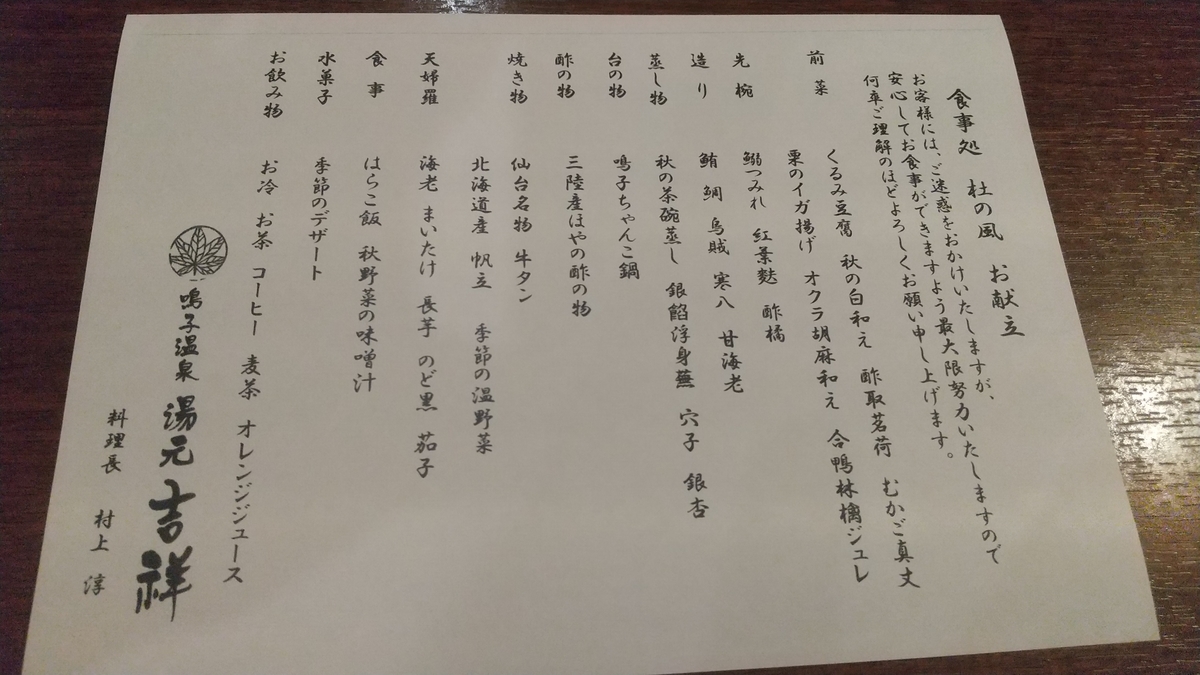 食事処 杜の風 お献立
お客様には、ご迷惑をおかけいたしますが、
安心してお食事ができますよう最大限努力いたしますので
何卒ご理解のほどよろしくお願い申し上げます。
前菜 くるみ豆腐 秋の白和え 酢取茗荷 むかご真丈
栗のイガ揚げ オクラ胡麻和え 合鴨林檎ジュレ
先椀 鰯つみれ 紅葉麩 酢橘
造り 鮪 鯛 烏賊 寒八 甘海老
蒸し物 秋の茶碗蒸し 銀餡浮身蕪 穴子 銀杏
台の物 鳴子ちゃんこ鍋
酢の物 三陸産ほやの酢の物
焼き物 仙台名物 牛タン
北海道産 帆立 季節の温野菜
天婦羅 海老 まいたけ 長芋 のど黒 茄子
食事 はらこ飯 秋野菜の味噌汁
水菓子 季節のデザート
お飲み物 お冷 お茶 コーヒー 麦茶 オレンジジュース
鳴子温泉 湯元 吉祥
料理長 村上 淳